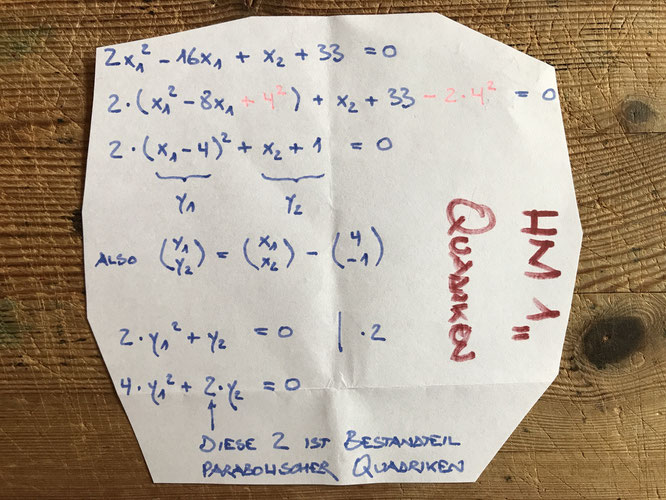 2x₁² - 16x₁ + x₂ + 33 = 0
2·(x₁² - 8x₁ + 4²) + x₂ + 33 - 2·4² = 0
2·(x₁-4)² + x₂ + 1 = 0
y₁ y₂
ALSO (y₁ y₂) = (x₁ x₂) - (4 -1)
2·y₁² + y₂ = 0 | ·2
4·y₁² + 2·y₂ = 0
DIESE 2 IST BESTANDTEIL
PARABOLISCHER QUADRIKEN
HM 1"
QUADRIKEN